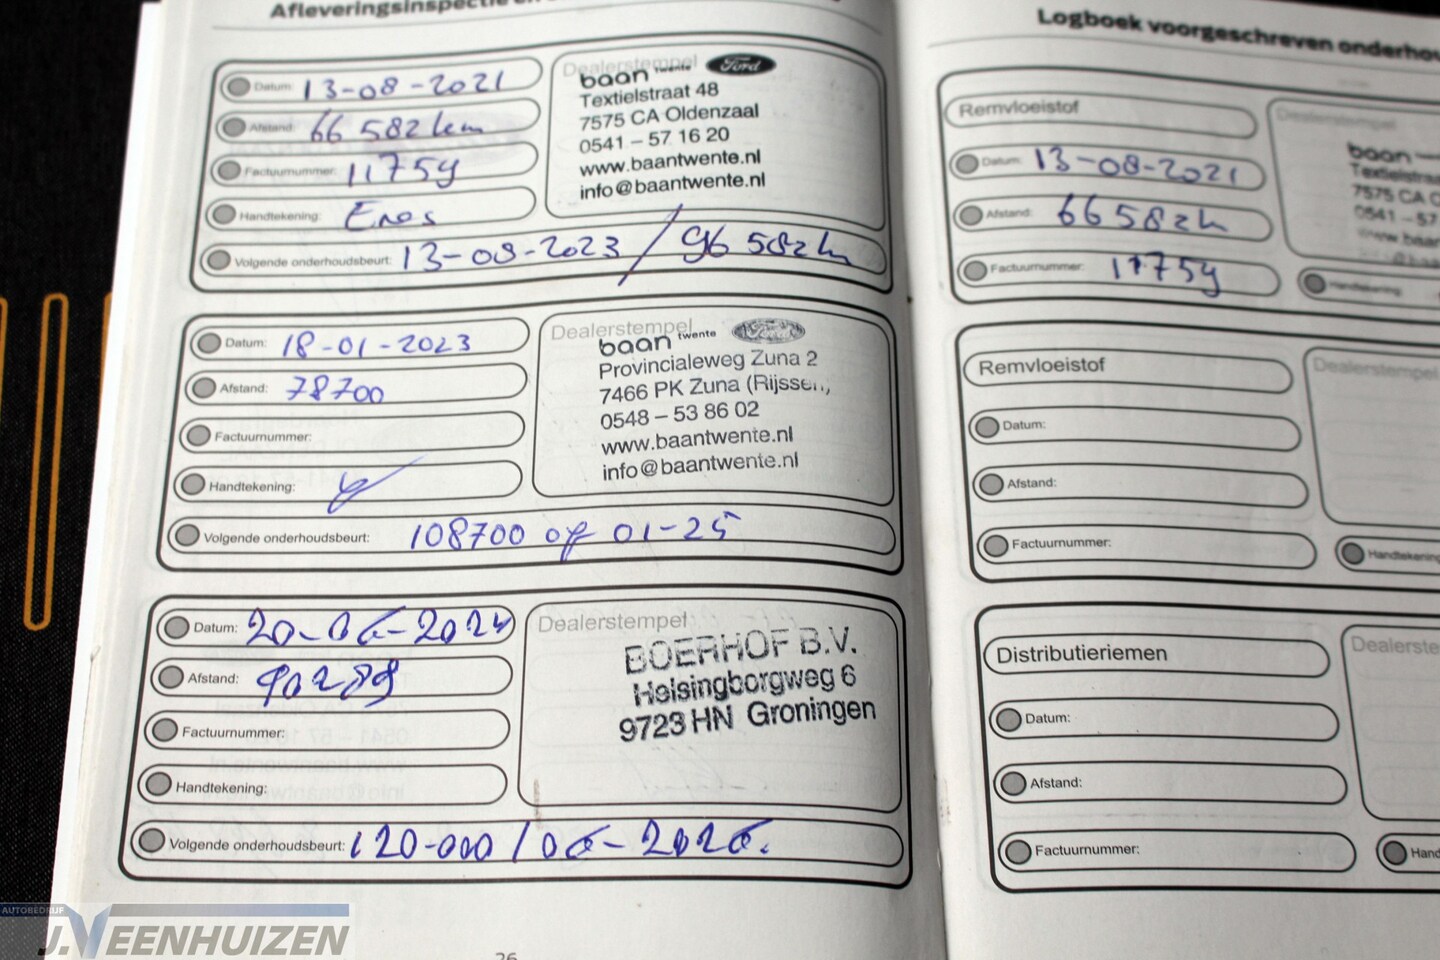 Afleveringsinspectie en
Datum: 13-08-2021
Afstand: 66 582 km
Factuurnummer: 11759
Handtekening: Enos
Volgende onderhoudsbeurt: 13-08-2023 / 96 582 km
Dealerstempel
baan twente Ford
Textielstraat 48
7575 CA Oldenzaal
0541 – 57 16 20
www.baantwente.nl
info@baantwente.nl
Datum: 18-01-2023
Afstand: 78700
Factuurnummer:
Handtekening:
Volgende onderhoudsbeurt: 108700 of 01-25
Dealerstempel
baan twente Ford
Provincialeweg Zuna 2
7466 PK Zuna (Rijssen)
0548 – 53 86 02
www.baantwente.nl
info@baantwente.nl
Datum: 20-06-2024
Afstand: 90289
Factuurnummer:
Handtekening:
Volgende onderhoudsbeurt: 120-000 / 06-2026.
Dealerstempel
BOERHOF B.V.
Helsingborgweg 6
9723 HN Groningen
26
Logboek voorgeschreven onderhou
Remvloeistof
Datum: 13-08-2021
Afstand: 66 582 km
Factuurnummer: 11759
Dealerstempel
baan
Textielstra
7575 CA O
0541 – 57
www.baan
Handtekening:
Remvloeistof
Datum:
Afstand:
Factuurnummer:
Dealerstempel
Handtekening
Distributieriemen
Datum:
Afstand:
Factuurnummer:
Dealerste
Hand
AUTOBEDRIJF
J. VEENHUIZEN